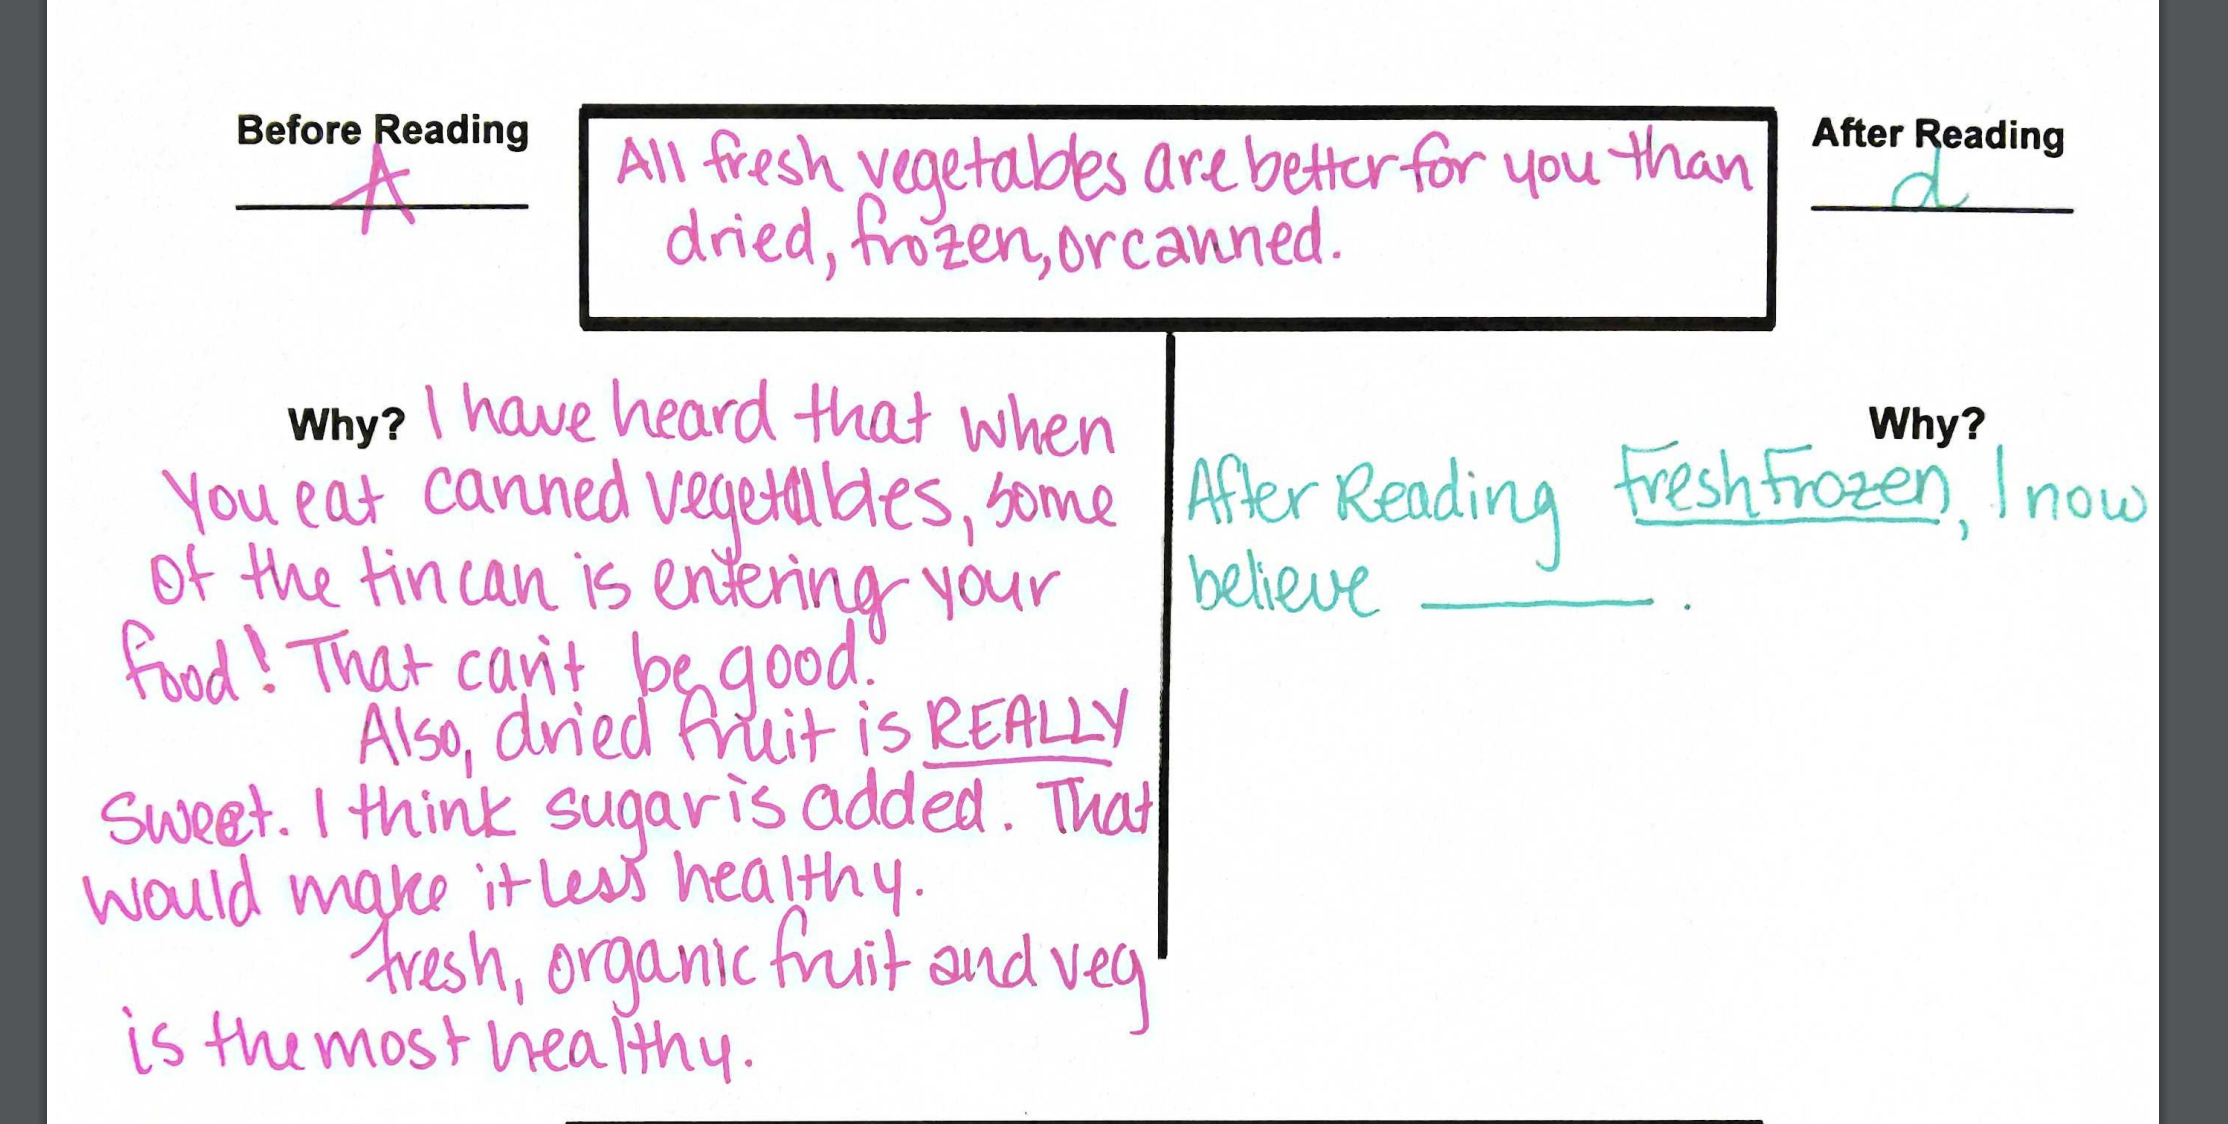 Before Reading
A
All fresh vegetables are better for you than
dried, frozen, or canned.
After Reading
d
Why? I have heard that when
you eat canned vegetables, some
of the tin can is entering your
food! That can't be good.
Also, dried fruit is REALLY
sweet. I think sugar is added. That
would make it less healthy.
Fresh, organic fruit and veg
is the most healthy.
Why?
After Reading Fresh Frozen, I now
believe ________.